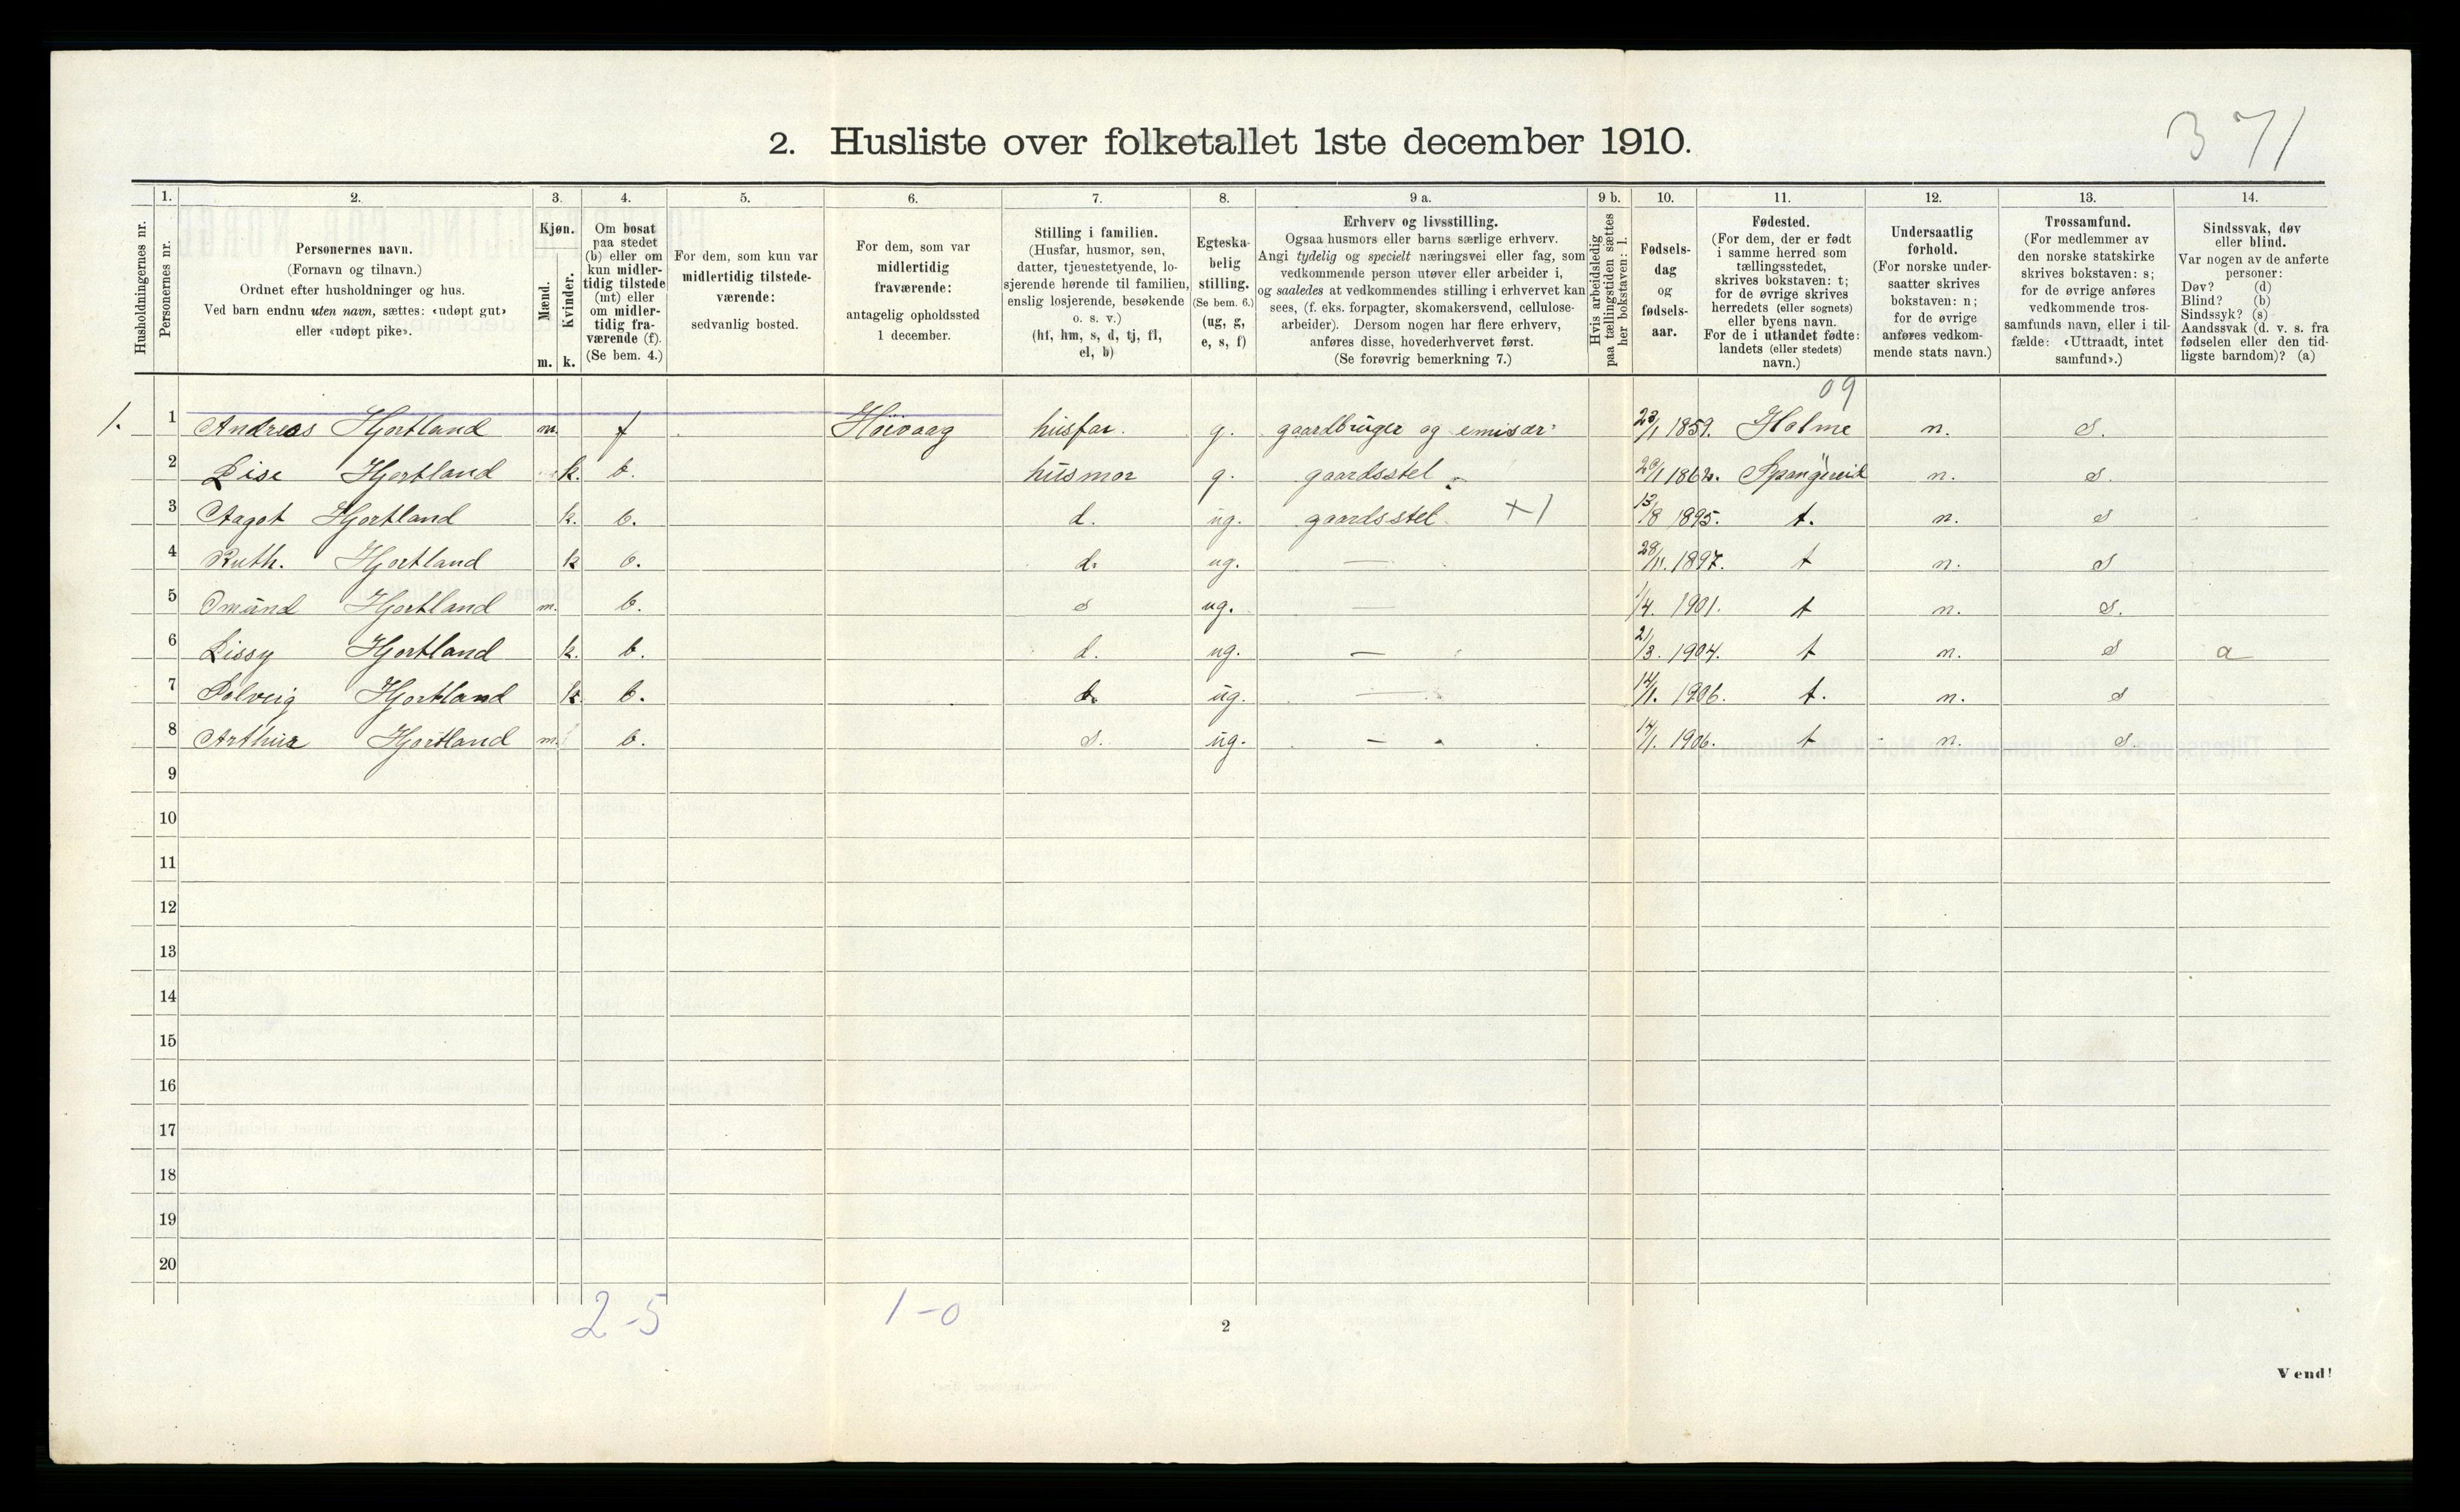 371
2. Husliste over folketallet 1ste december 1910.
Husholdningernes nr.
1. Personernes nr.
2. Personernes navn.
(Fornavn og tilnavn.)
Ordnet efter husholdninger og hus.
Ved barn endnu uten navn, sættes: «udøpt gut»
eller «udøpt pike».
3. Kjøn.
Mænd. m.
Kvinder. k.
4. Om bosat
paa stedet
(b) eller om
kun midler-
tidig tilstede
(mt) eller
om midler-
tidig fra-
værende (f).
(Se bem. 4.)
5. For dem, som kun var
midlertidig tilstede-
værende:
sedvanlig bosted.
6. For dem, som var
midlertidig
fraværende:
antagelig opholdssted
1 december.
7. Stilling i familien.
(Husfar, husmor, søn,
datter, tjenestetyende, lo-
sjerende hørende til familien,
enslig losjerende, besøkende
o. s. v.)
(hf, hm, s, d, tj, fl,
el, b)
8. Egteska-
belig
stilling.
(Se bem. 6.)
(ug, g,
e, s, f)
9 a. Erhverv og livsstilling.
Ogsaa husmors eller barns særlige erhverv.
Angi tydelig og specielt næringsvei eller fag, som
vedkommende person utøver eller arbeider i,
og saaledes at vedkommendes stilling i erhvervet kan
sees, (f. eks. forpagter, skomakersvend, cellulose-
arbeider). Dersom nogen har flere erhverv,
anføres disse, hovederhvervet først.
(Se forøvrig bemerkning 7.)
9 b. Hvis arbeidsledig
paa tællingstiden sættes
her bokstaven: l.
10. Fødsels-
dag
og
fødsels-
aar.
11. Fødested.
(For dem, der er født
i samme herred som
tællingsstedet,
skrives bokstaven: t;
for de øvrige skrives
herredets (eller sognets)
eller byens navn.
For de i utlandet fødte:
landets (eller stedets)
navn.)
12. Undersaatlig
forhold.
(For norske under-
saatter skrives
bokstaven: n;
for de øvrige
anføres vedkom-
mende stats navn.)
13. Trossamfund.
(For medlemmer av
den norske statskirke
skrives bokstaven: s;
for de øvrige anføres
vedkommende tros-
samfunds navn, eller i til-
fælde: «Uttraadt, intet
samfund».)
14. Sindssvak, døv
eller blind.
Var nogen av de anførte
personer:
Døv? (d)
Blind? (b)
Sindssyk? (s)
Aandssvak (d. v. s. fra
fødselen eller den tid-
ligste barndom)? (a)
09
1. 1 Andreas Hjortland m. f Høivaag husfar. g. gaardbruger og emisær 23/1 1859. Holme n. s.
2 Lise Hjortland k. b. husmor g. gaardsstel 1862. Spangereid n. s.
3 Aagot Hjortland k. b. d. ug. gaardsstel X1 13/8 1895. t. n. s
4 Ruth. Hjortland k b. d. ug. — 28/11. 1897. t n. s
5 Omund Hjortland m. b. s ug. — 1/4. 1901. t n. s.
6 Lissy Hjortland k. b. d. ug. — 21/3. 1904. t n. s a
7 Solveig Hjortland k. b. d. ug. — 14/1. 1906. t. n. s
8 Arthur Hjortland m. b. s. ug. — 14/1. 1906. t n. s.
9
10
11
12
13
14
15
16
17
18
19
20
2-5 1-0
2
Vend!